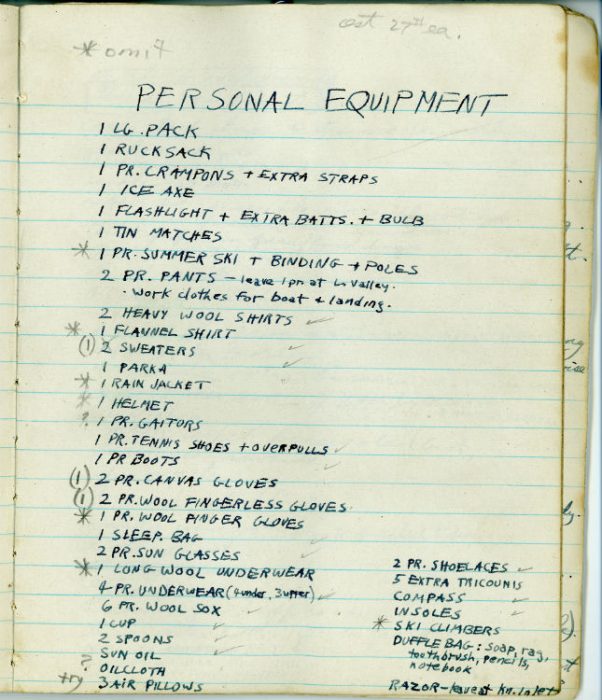 Oct 27th ea.
* omit
PERSONAL EQUIPMENT
1 LG. PACK
1 RUCKSACK
1 PR. CRAMPONS + EXTRA STRAPS
1 ICE AXE
1 FLASHLIGHT + EXTRA BATTS. + BULB
1 TIN MATCHES
* 1 PR. SUMMER SKI + BINDING + POLES
2 PR. PANTS - leave 1 pr. at Valley.
· work clothes for boat + landing.
2 HEAVY WOOL SHIRTS ✓
* 1 FLANNEL SHIRT
(1) 2 SWEATERS ✓
1 PARKA ✓
* 1 RAIN JACKET
* 1 HELMET
? 1 PR. GAITORS
1 PR. TENNIS SHOES + OVERPULLS ✓
1 PR BOOTS ✓
(1) 2 PR. CANVAS GLOVES
(1) 2 PR. WOOL FINGERLESS GLOVES
* 1 PR. WOOL FINGER GLOVES
1 SLEEP. BAG ✓
2 PR. SUN GLASSES ✓
* 1 LONG WOOL UNDERWEAR
4 PR. UNDERWEAR (4 under, 3 upper) ✓
6 PR. WOOL SOX ✓
1 CUP ✓
2 SPOONS ✓
SUN OIL ✓
? OILCLOTH
try 3 AIR PILLOWS
2 PR. SHOELACES ✓
5 EXTRA TRICOUNIS
COMPASS ✓
INSOLES ✓
* SKI CLIMBERS
DUFFLE BAG: soap, rag,
toothbrush, pencils,
notebook
RAZOR - leave at Kn. Inlet